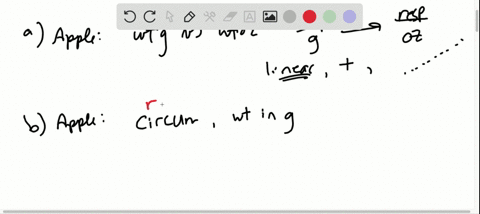 a) Apple: wt g vs wt oz g → resp oz
linear, +,
r
b) Apple: Circum, wt in g